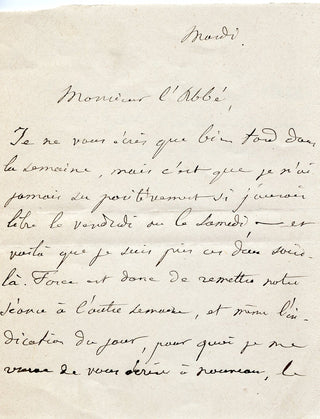 Mardi.
Monsieur l'Abbé,
Je ne vous écris que bien tard dans
la semaine, mais c'est que je n'ai
jamais su positivement si j'aurais
libre le vendredi ou le samedi — et
voilà que je suis pris ces deux
là. Force est donc de remettre notre
séance à l'autre semaine, et même l'in-
dication du jour, pour quoi je me
de vous écrire à nouveau, le